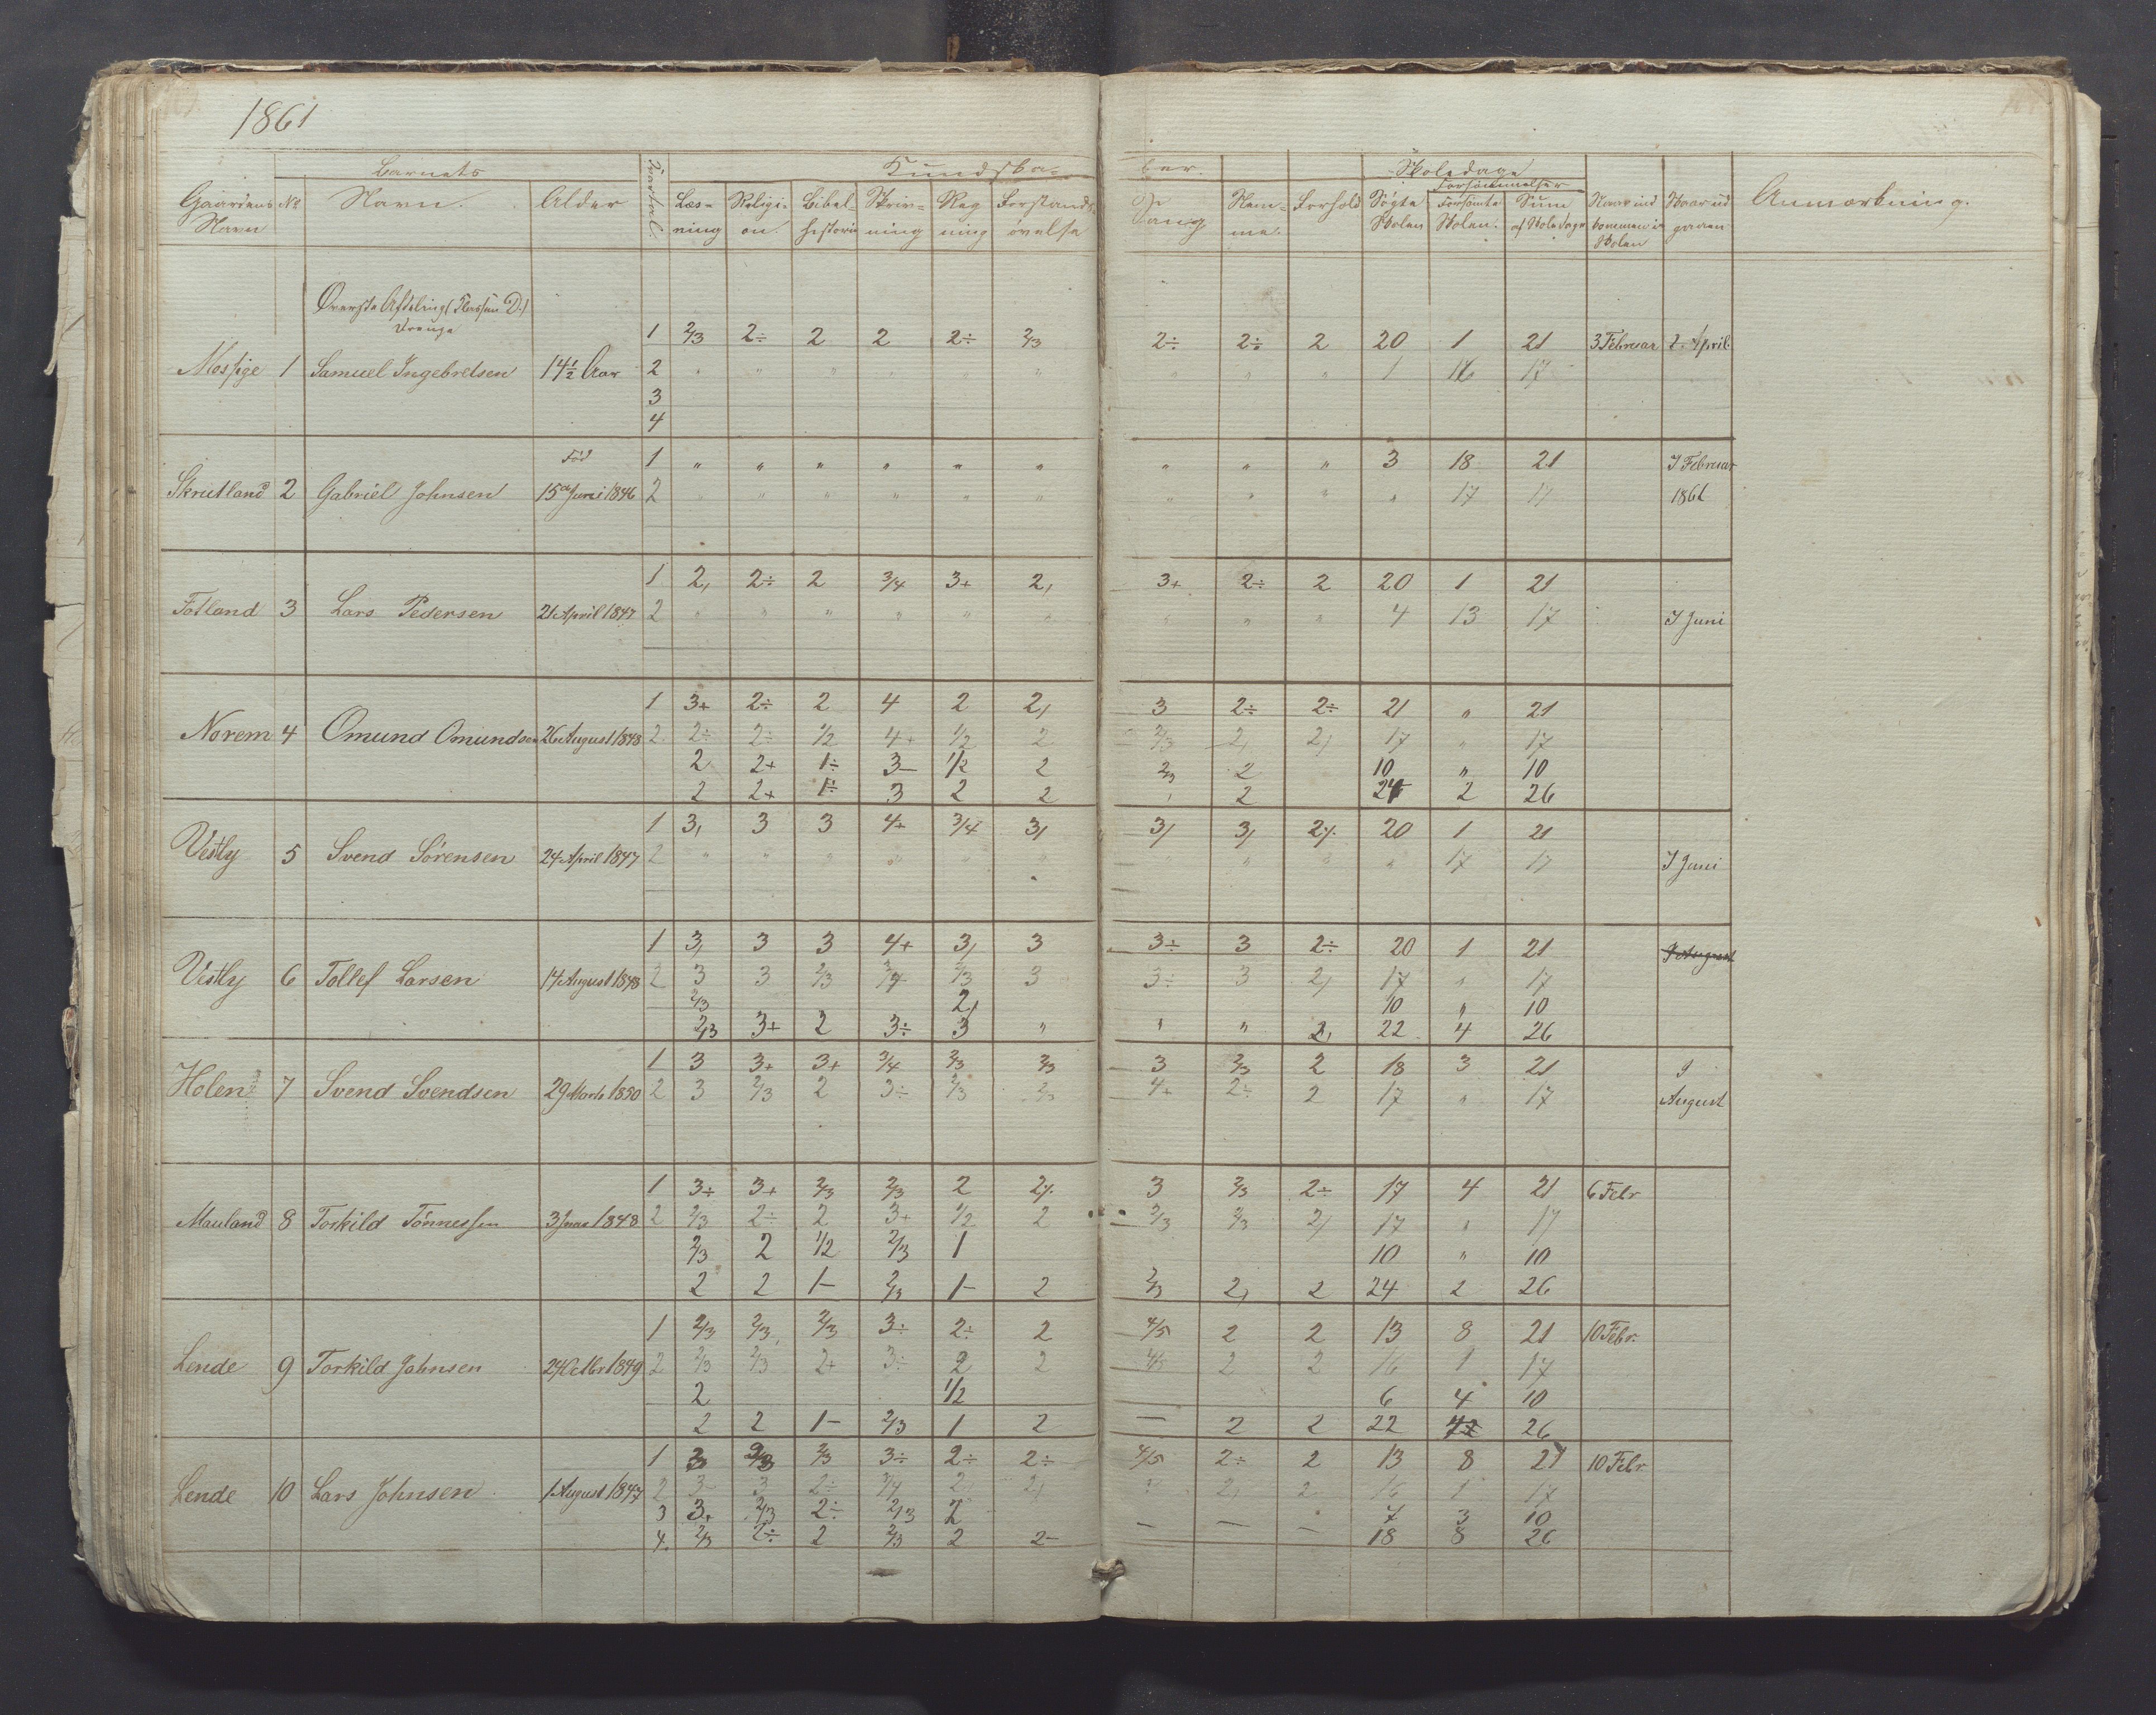 1861
Barnets Kundska- ber. Skoledage
Gaardens Navn No Navn. Alder Qvartal. Læs- ning Religi- on. Bibel- historie Skriv- ning Reg ning Forstands- øvelse Sang Nem- me. Forhold Søgte Skolen Forsømmelser Forsømte Skolen. Sum af Skoledage Naar ind kommen i Skolen Naar ud gaaen Anmærkning.
Øverste Afdeling (Klassen D.)
Drenge
1 2/3 2÷ 2 2 2÷ 2/3 2÷ 2÷ 2 20 1 21 3 Februar 2. April
Mossige 1 Samuel Ingebretsen 14½ Aar 2 " " " " " " " " " 1 16 17
3
4
Fød 1 " " " " " " " " " 3 18 21 I Februar
Skrutland 2 Gabriel Johnsen 15de Juni 1846 2 " " " " " " " " " " 17 17 1861
1 2, 2÷ 2 3/4 3+ 2, 3+ 2÷ 2 20 1 21
Fotland 3 Lars Pedersen 21 April 1847 2 " " " " " " " " " 4 13 17 I Juni
1 3+ 2÷ 2 4 2 2, 3 2÷ 2÷ 21 " 21
Norem 4 Omund Omundsen 26 August 1848 2 2÷ 2÷ 1/2 4+ 1/2 2 2/3 2, 2, 17 " 17
2 2+ 1÷ 3- 1/2 2 2/3 2 10 " 10
2 2+ 1÷ 3 2 2 2 24 2 26
1 3, 3 3 4+ 3/4 3, 3, 3, 2÷ 20 1 21
Vestly 5 Svend Sørensen 24 April 1847 2 " " " " " " " " " " 17 17 I Juni
1 3, 3 3 4+ 3, 3 3÷ 3 2÷ 20 1 21 I August
Vestly 6 Tollef Larsen 14 August 1848 2 3 3 2/3 3/4 2/3 3 3÷ 3 2, 17 " 17
2/3 2, 10 " 10
2/3 3+ 2 3÷ 3 " " " 2, 22 4 26
1 3 3+ 3+ 3/4 2/3 2/3 3 2/3 2 18 3 21 I
Holen 7 Svend Svendsen 29 Marts 1850 2 3 2/3 2 3÷ 2/3 2/3 4+ 2÷ 2 17 " 17 August
1 3÷ 3+ 2/3 2/3 2 2÷ 3 2/3 2÷ 17 4 21 6 Febr
Mauland 8 Torkild Tønnessen 3 Juni 1848 2 2/3 2÷ 2 3+ 1/2 2 2/3 2/3 2, 17 " 17
2/3 2 1/2 2/3 1 10 " 10
2 2 1- 2/3 1- 2 2/3 2, 2 24 2 26
1 2/3 2/3 2/3 3÷ 2÷ 2 4/5 2 2 13 8 21 10 Febr.
Lende 9 Torkild Johnsen 24 Octbr 1849 2 2/3 2/3 2+ 3÷ 2 2 4/5 2 2 16 1 17
2 1/2 6 4 10
2 2 1- 2/3 1 2 — 2 2 22 4 26
1 3 2/3 2/3 3÷ 2÷ 2÷ 4/5 2÷ 2 13 8 21 10 Febr
Lende 10 Lars Johnsen 1 August 1847 2 3 3 2÷ 3/4 2, 2, 2, 2 16 1 17
3 3+ 2/3 2÷ 2/3 2 7 3 10
4. 2/3 2÷ 2 2/3 2 2- — — — 18 8 26